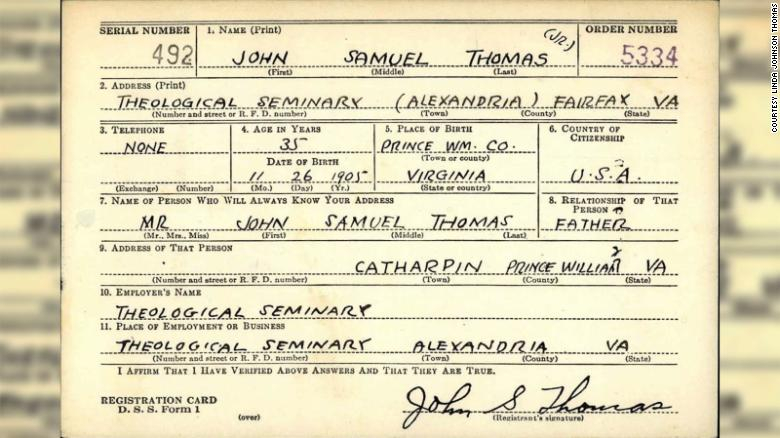 SERIAL NUMBER 1. NAME (Print) ORDER NUMBER
492 JOHN SAMUEL THOMAS (JR.) 5334
(First) (Middle) (Last)
2. ADDRESS (Print)
THEOLOGICAL SEMINARY (ALEXANDRIA) FAIRFAX VA
(Number and street or R. F. D. number) (Town) (County) (State)
3. TELEPHONE 4. AGE IN YEARS 5. PLACE OF BIRTH 6. COUNTRY OF CITIZENSHIP
NONE 35 PRINCE WM. CO.
(Town or county)
DATE OF BIRTH
11 26 1905 VIRGINIA U.S.A.
(Exchange) (Number) (Mo.) (Day) (Yr.) (State or country)
7. NAME OF PERSON WHO WILL ALWAYS KNOW YOUR ADDRESS 8. RELATIONSHIP OF THAT PERSON
MR JOHN SAMUEL THOMAS FATHER
(Mr., Mrs., Miss) (First) (Middle) (Last)
9. ADDRESS OF THAT PERSON
CATHARPIN PRINCE WILLIAM VA
(Number and street or R. F. D. number) (Town) (County) (State)
10. EMPLOYER'S NAME
THEOLOGICAL SEMINARY
11. PLACE OF EMPLOYMENT OR BUSINESS
THEOLOGICAL SEMINARY ALEXANDRIA VA
(Number and street or R. F. D. number) (Town) (County) (State)
I AFFIRM THAT I HAVE VERIFIED ABOVE ANSWERS AND THAT THEY ARE TRUE.
REGISTRATION CARD
D. S. S. Form 1
(over)
John S Thomas
(Registrant's signature)
COURTESY LINDA JOHNSON THOMAS